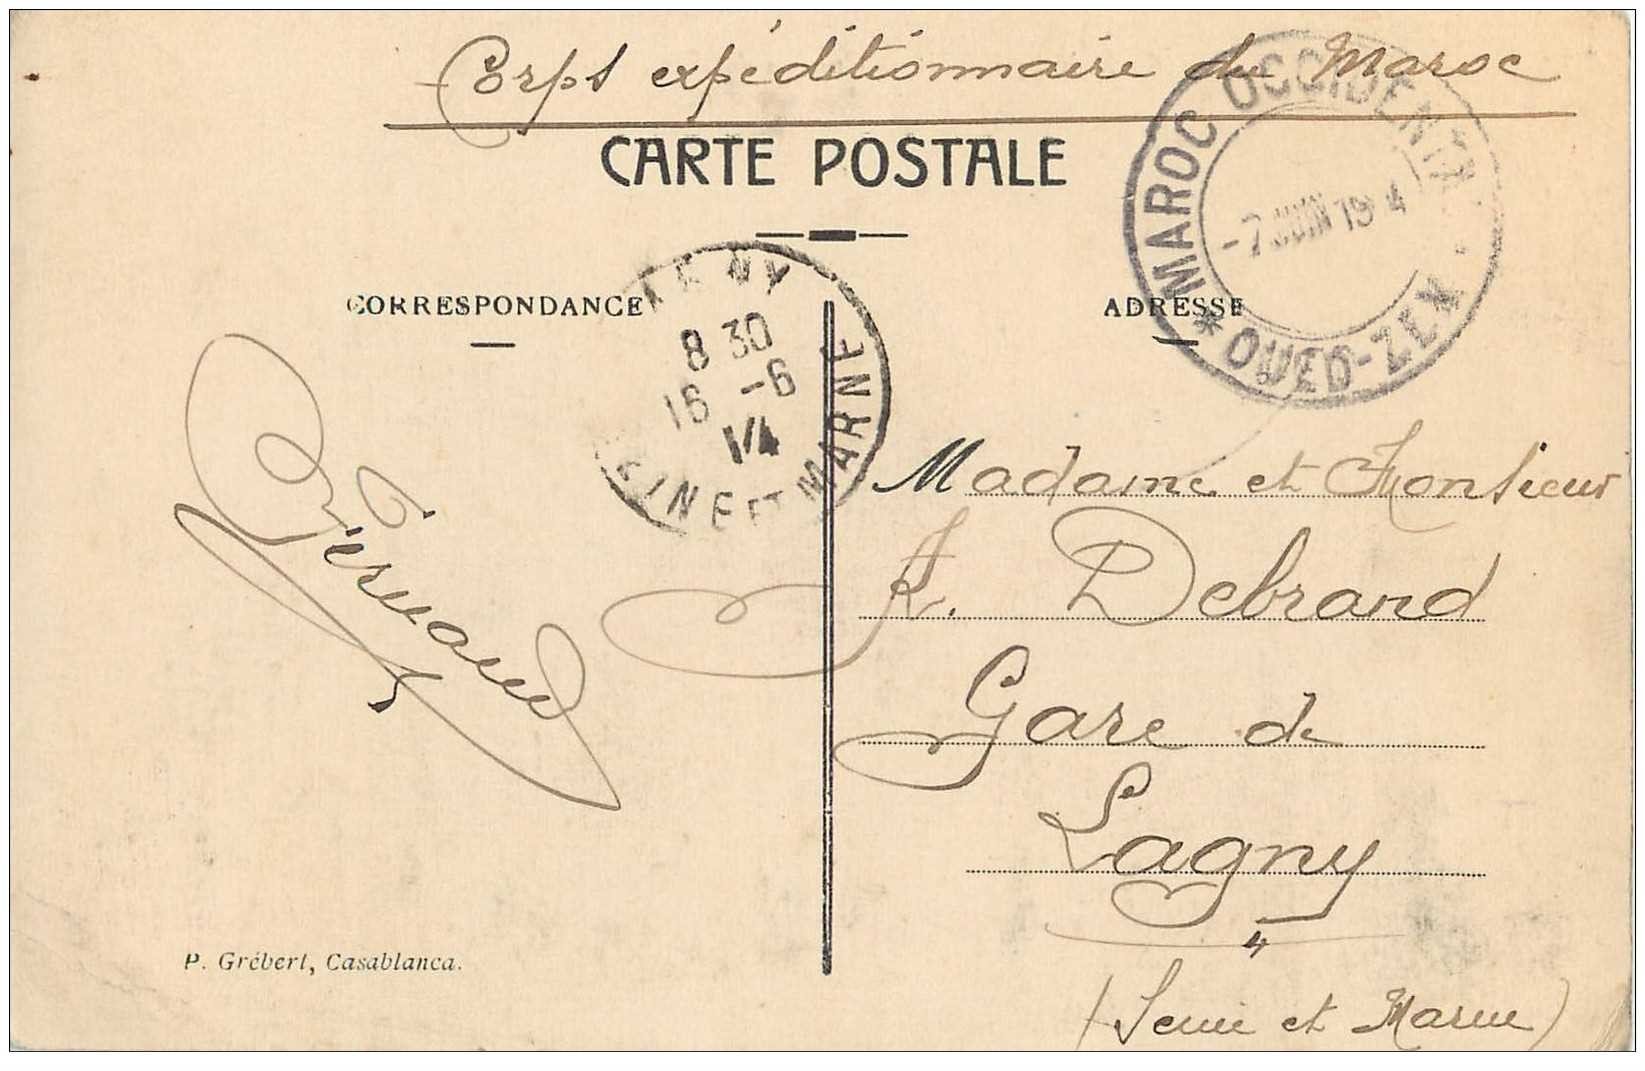 Corps expéditionnaire du Maroc
CARTE POSTALE
MAROC OCCIDENTAL
-7 JUIN 1914
* OUED-ZEM
CORRESPONDANCE
ADRESSE
LAGNY
8 30
16 -6
14
SEINE ET MARNE
Madame et Monsieur
A. Debrand
Gare de
Lagny
(Seine et Marne)
P. Grébert, Casablanca.